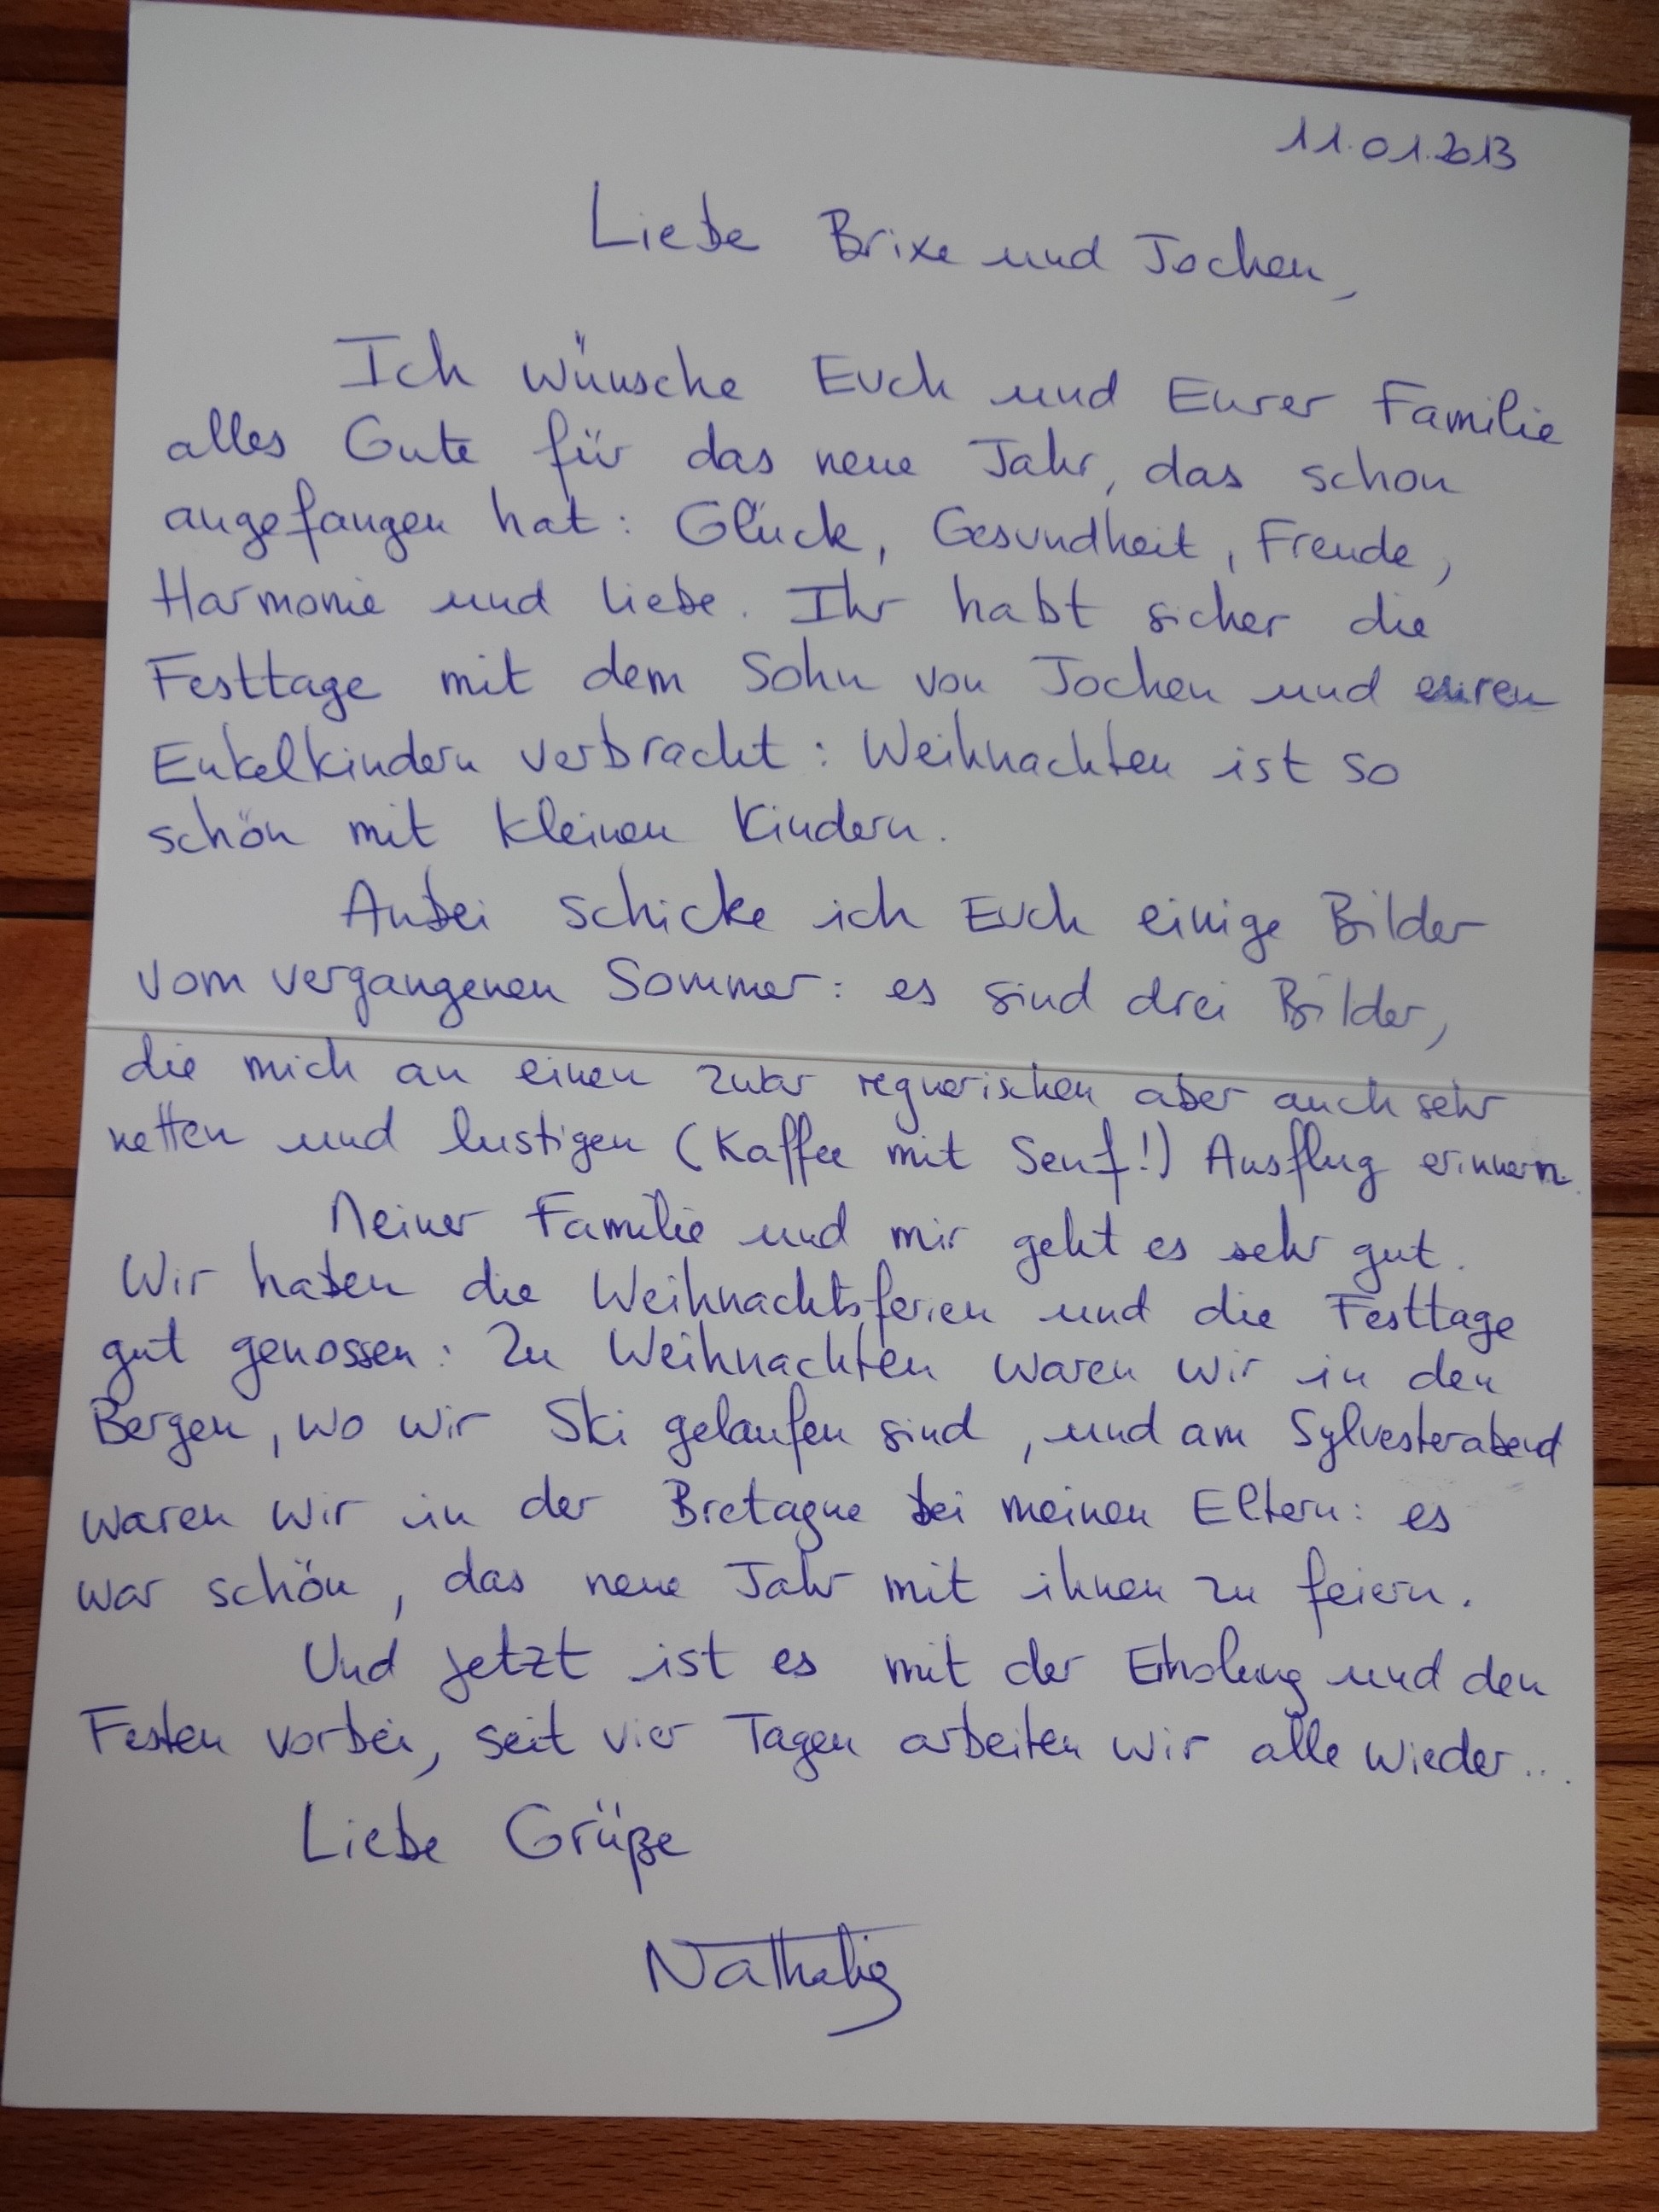 11.01.2013
Liebe Brixe und Jochen,
Ich wünsche Euch und Eurer Familie
alles Gute für das neue Jahr, das schon
angefangen hat: Glück, Gesundheit, Freude,
Harmonie und Liebe. Ihr habt sicher die
Festtage mit dem Sohn von Jochen und euren
Enkelkindern verbracht: Weihnachten ist so
schön mit kleinen Kindern.
Anbei schicke ich Euch einige Bilder
vom vergangenen Sommer: es sind drei Bilder,
die mich an einen zwar regnerischen aber auch sehr
netten und lustigen (Kaffee mit Senf!) Ausflug erinnern.
Meiner Familie und mir geht es sehr gut.
Wir haben die Weihnachtsferien und die Festtage
gut genossen: Zu Weihnachten waren wir in den
Bergen, wo wir Ski gelaufen sind, und am Sylvesterabend
waren wir in der Bretagne bei meinen Eltern: es
war schön, das neue Jahr mit ihnen zu feiern.
Und jetzt ist es mit der Erholung und den
Festen vorbei, seit vier Tagen arbeiten wir alle wieder...
Liebe Grüße
Nathalie